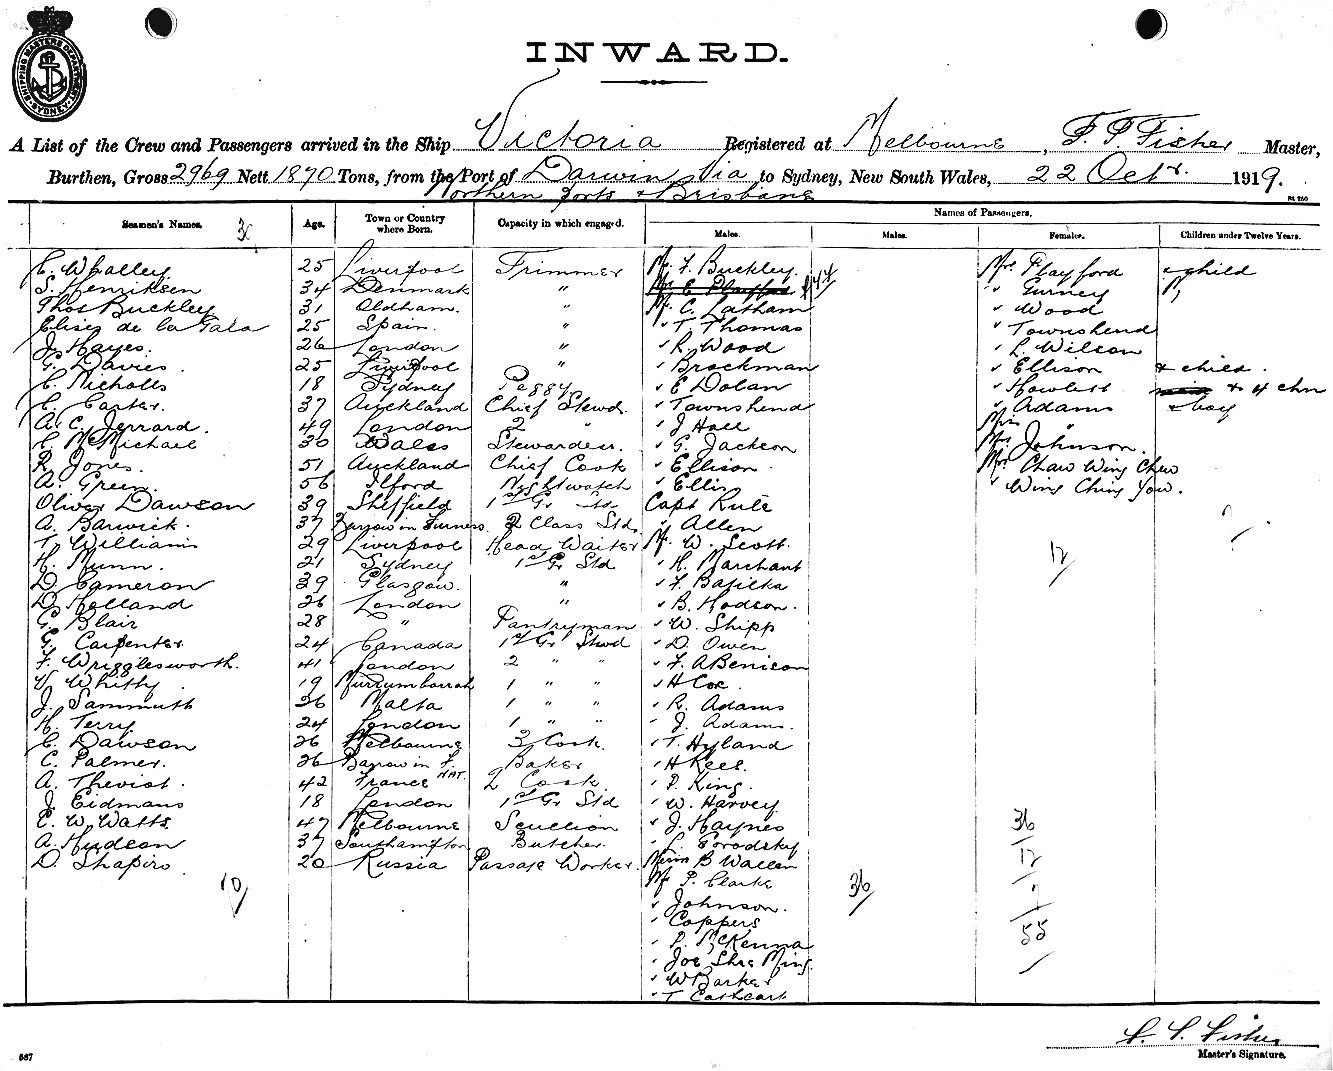 SHIPPING MASTERS DEPARTMENT SYDNEY
INWARD.
A List of the Crew and Passengers arrived in the Ship Victoria Registered at Melbourne, F. P. Fisher Master,
Burthen, Gross 2969 Nett 1870 Tons, from the Port of Darwin Via to Sydney, New South Wales, 22 Octr. 1919.
Northern Ports & Brisbane
Seamen's Names. Age. Town or Country where Born. Capacity in which engaged. Names of Passengers.
Males. Males. Females. Children under Twelve Years.
C. Whalley 25 Liverpool Trimmer Mr. F. Buckley Mrs Playford & child
S. Henriksen 34 Denmark " " Gurney
Thos Buckley 31 Oldham. " Mr. C. Latham " Wood
Elises de la Gala 25 Spain. " " T. Thomas " Townshend
J. Hayes. 26 London " " R. Wood " L. Wilson
G. Davies. 25 Liverpool " " Brockman " Ellison & child.
C. Nicholls 18 Sydney Peggy " E Dolan " Howlett & 4 chn
C. Carter. 37 Auckland Chief Stewd. " Townshend " Adams & boy
A. C. Jerrard. 49 London 2 " " J Hall Miss
C. McMichael 30 Wales Stewardess. " G. Jackson Mrs Johnson.
R. Jones. 51 Auckland Chief Cook " Ellison. Mrs Chaw Wing Chew
A. Green. 56 Ilford Nightwatch " Ellis " Wing Ching You.
Oliver Dawson 39 Sheffield 1st Gr. Std. Capt Rule
A. Barwick. 37 Barrow in Furness. 2 Class Std. " Allen
T. Williams 29 Liverpool Head Waiter Mr. W. Scott. 12
H. Munn. 21 Sydney 1st Gr Std " H. Marchant
D. Cameron 39 Glasgow. " " F.
D. Holland 26 London " " B. Hodson.
G. Blair 28 " Pantryman " W. Shipp
G. Carpenter 24 Canada 1st Gr Stwd " D. Owen
F. Wrigglesworth. 41 London 2 " " " F. A Benison
V. Whitty. 19 Murrumburrah 1 " " " H Cox.
J. Sammuth 26 Malta 1 " " " R. Adams
H. Terry 24 London 1 " " " J. Adams
C. Dawson 26 Melbourne 3 Cook. " T. Hyland
C. Palmer. 26 Barrow in F. Baker " H Rees.
A. Theviot. 42 France NAT. 2 Cook " P. King.
J. Eidmans 18 London 1st Gr Std " W. Harvey
E. W. Watts 47 Melbourne Scullion " J. Haynes 36
A. Hudson 37 Southampton Butcher. " L. Gorodsky
D. Shapiro. 20 Russia Passage Worker. B Wallen 12
10 Mr P. Clarke 36
" Johnson.
" Coppers 55
" P. McKenna
" Joe Shee Ming.
" W Barker
" T Cathcart
F. P. Fisher
Master's Signature.
587